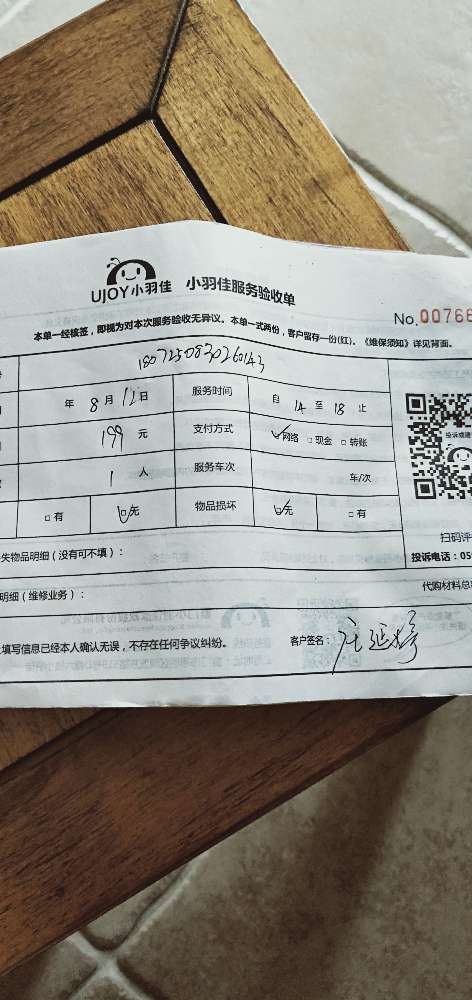 UJOY小羽佳 小羽佳服务验收单
No.00766
本单一经核签，即视为对本次服务验收无异议。本单一式两份，客户留存一份(红)。《维保须知》详见背面。
1807250830260143
年 8 月 12 日 服务时间 自 14 至 18 止
199 元 支付方式 ☑网络 □现金 □转账
1 人 服务车次 车/次
投诉或建
□有 ☑无 物品损坏 ☑无 □有
扫码评
失物品明细（没有可不填）： 投诉电话：059
明细（维修业务）： 代购材料总
填写信息已经本人确认无误，不存在任何争议纠纷。 客户签名：庄延婷